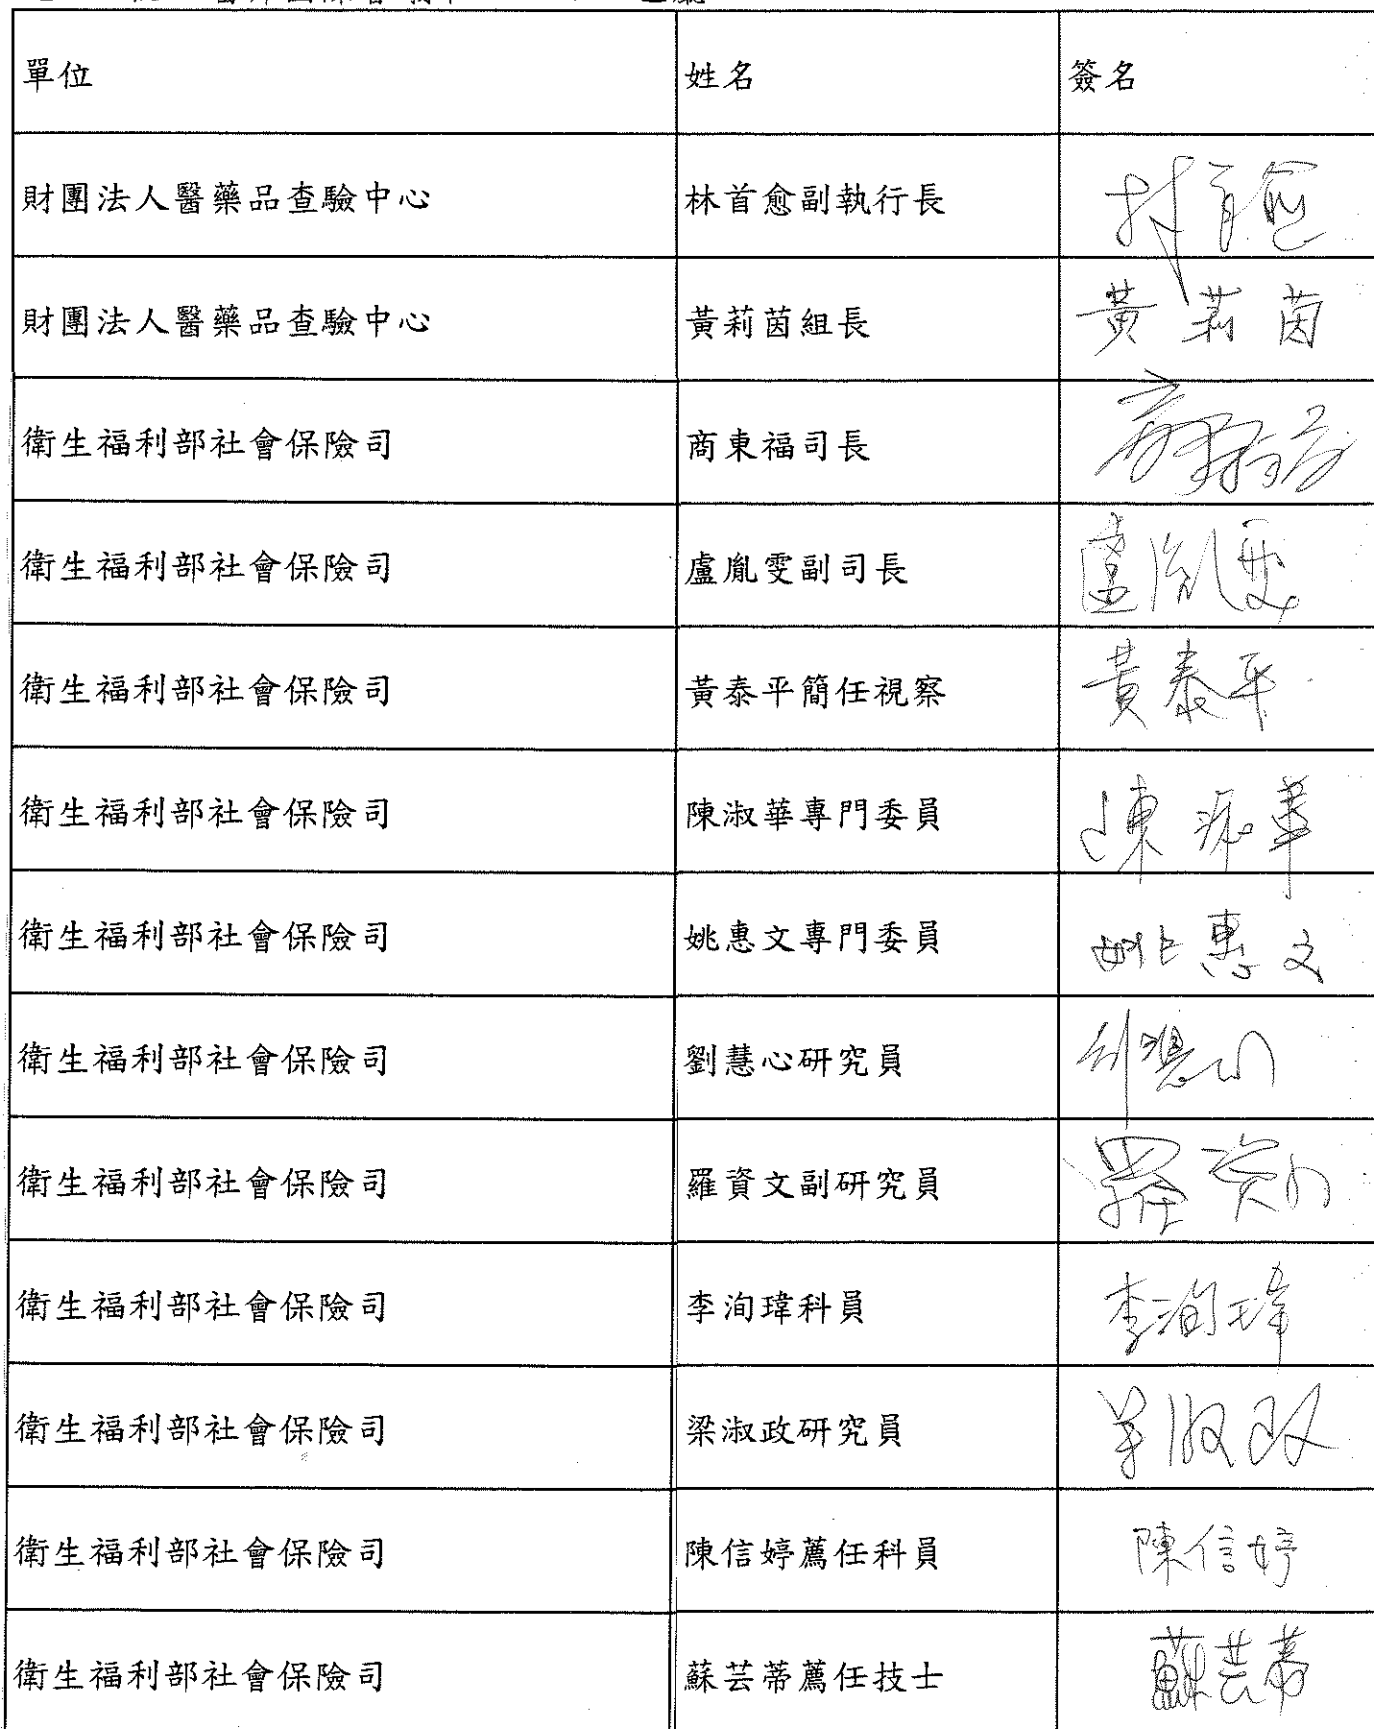 單位 姓名 簽名
財團法人醫藥品查驗中心 林首愈副執行長 林首愈
財團法人醫藥品查驗中心 黃莉茵組長 黃莉茵
衛生福利部社會保險司 商東福司長 商東福
衛生福利部社會保險司 盧胤雯副司長 盧胤雯
衛生福利部社會保險司 黃泰平簡任視察 黃泰平
衛生福利部社會保險司 陳淑華專門委員 陳淑華
衛生福利部社會保險司 姚惠文專門委員 姚惠文
衛生福利部社會保險司 劉慧心研究員 劉慧心
衛生福利部社會保險司 羅資文副研究員 羅資文
衛生福利部社會保險司 李洵瑋科員 李洵瑋
衛生福利部社會保險司 梁淑政研究員 梁淑政
衛生福利部社會保險司 陳信婷薦任科員 陳信婷
衛生福利部社會保險司 蘇芸蒂薦任技士 蘇芸蒂